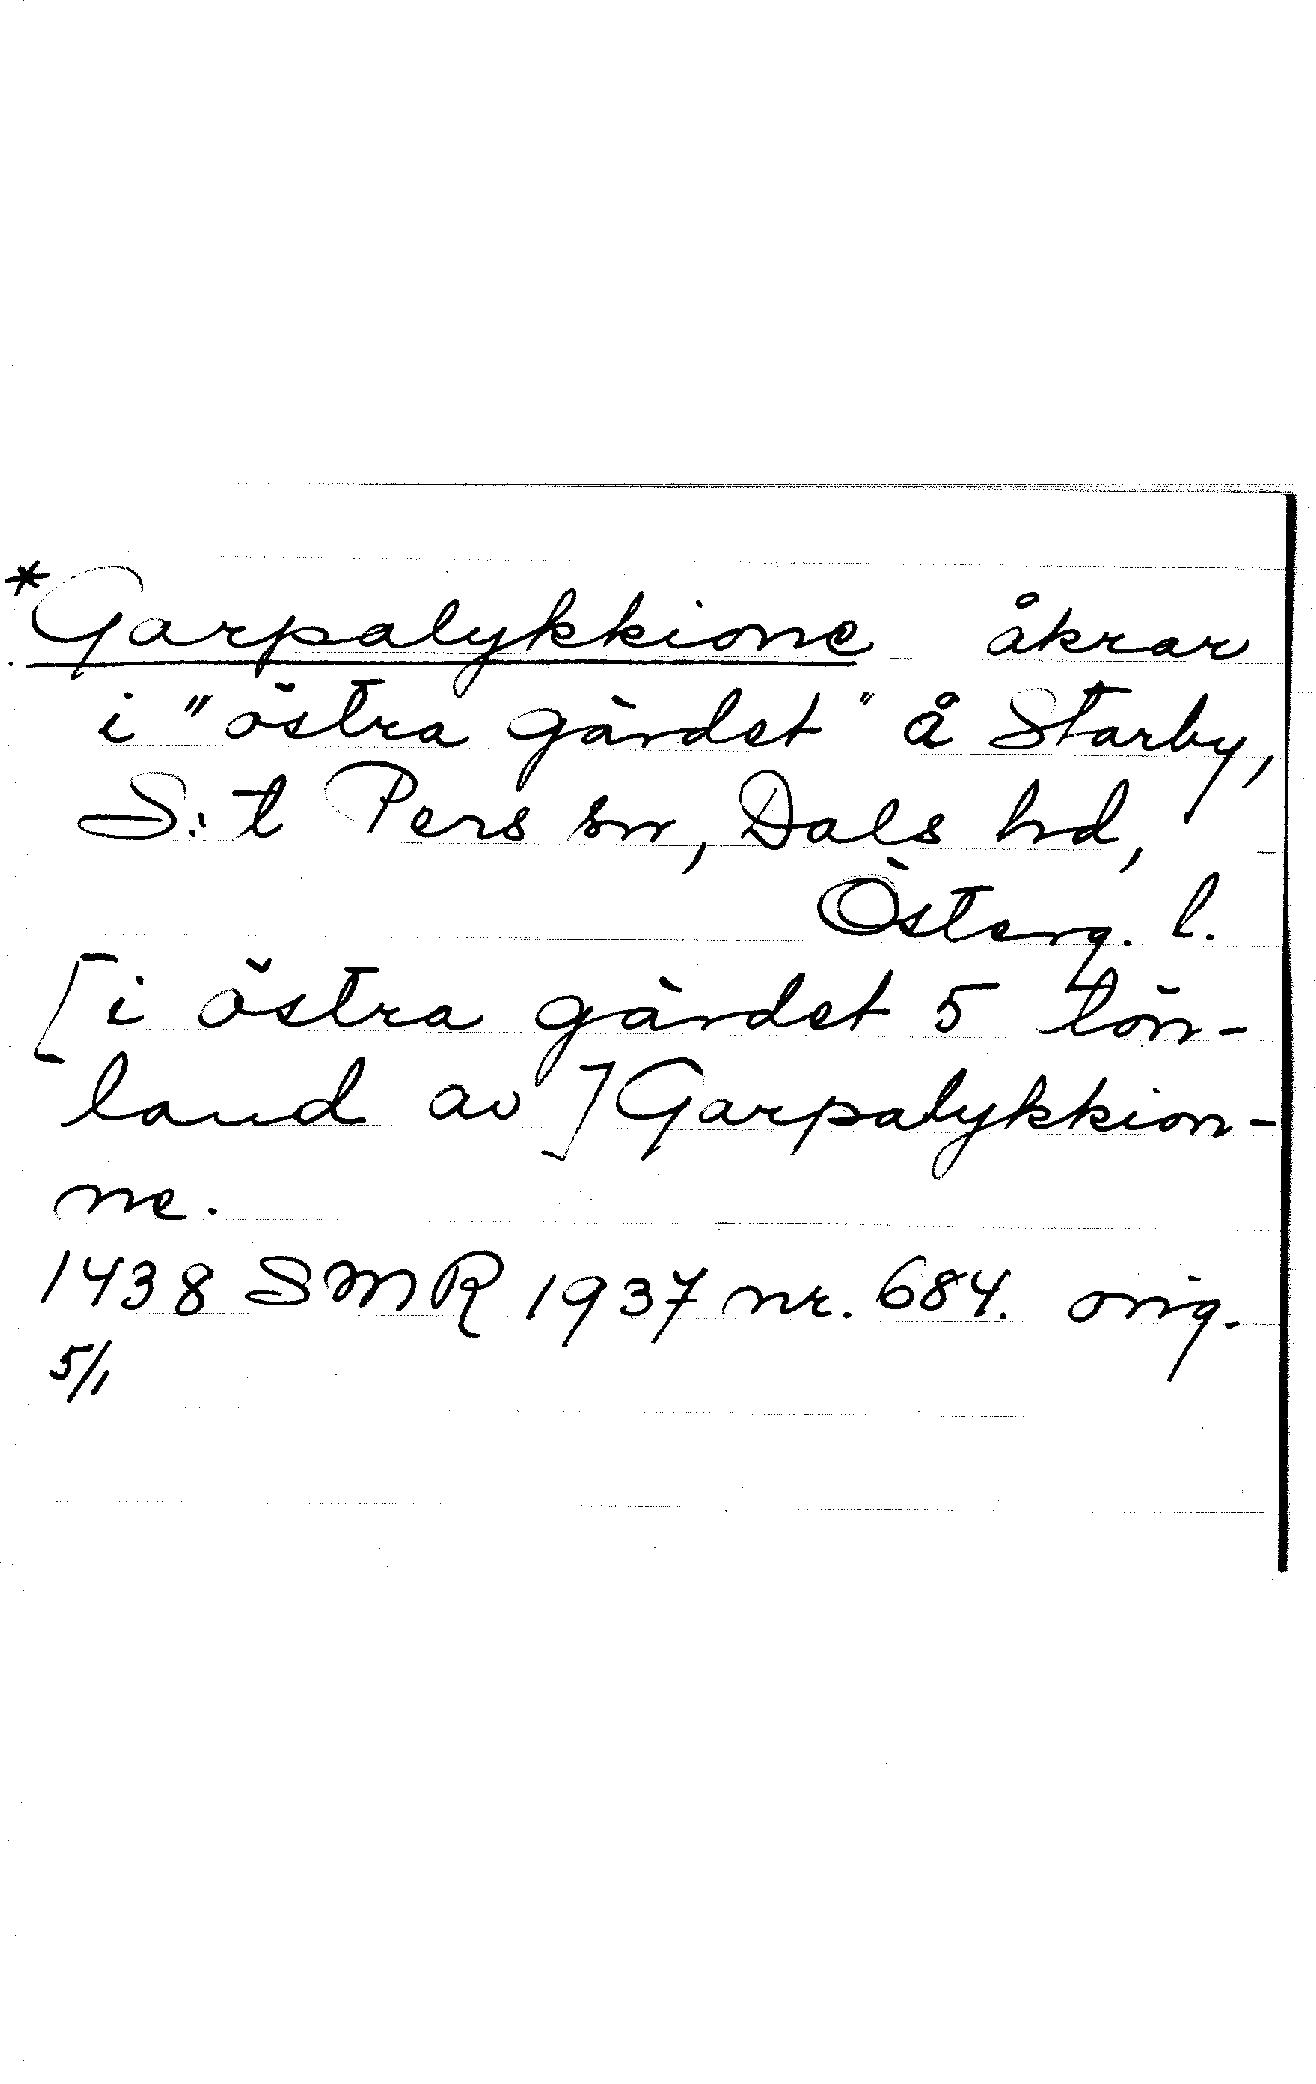 *Garpalykkione åkrar
i "östra gärdet" å Starby,
S:t Pers sn, Dals hd,
Österg. l.
[i östra gärdet 5 tön-
land av] Garpalykkion-
ne.
1438 SMR 1937 nr. 684. orig.
5/1